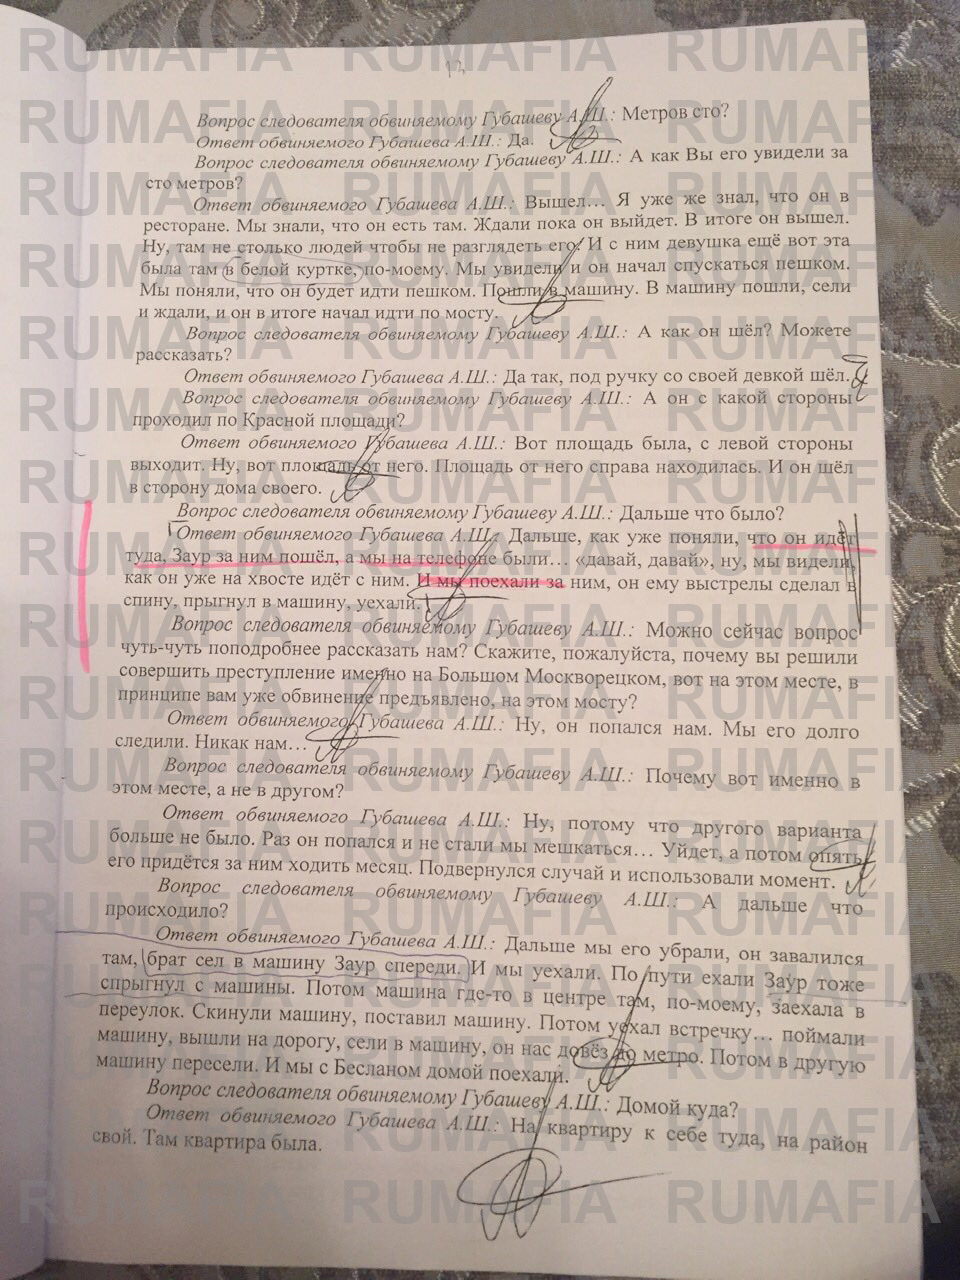 13
Вопрос следователя обвиняемому Губашеву А.Ш.: Метров сто?
Ответ обвиняемого Губашева А.Ш.: Да.
Вопрос следователя обвиняемому Губашеву А.Ш.: А как Вы его увидели за
сто метров?
Ответ обвиняемого Губашева А.Ш.: Вышел… Я уже же знал, что он в
ресторане. Мы знали, что он есть там. Ждали пока он выйдет. В итоге он вышел.
Ну, там не столько людей чтобы не разглядеть его. И с ним девушка ещё вот эта
была там в белой куртке, по-моему. Мы увидели и он начал спускаться пешком.
Мы поняли, что он будет идти пешком. Пошли в машину. В машину пошли, сели
и ждали, и он в итоге начал идти по мосту.
Вопрос следователя обвиняемому Губашеву А.Ш.: А как он шёл? Можете
рассказать?
Ответ обвиняемого Губашева А.Ш.: Да так, под ручку со своей девкой шёл.
Вопрос следователя обвиняемому Губашеву А.Ш.: А он с какой стороны
проходил по Красной площади?
Ответ обвиняемого Губашева А.Ш.: Вот площадь была, с левой стороны
выходит. Ну, вот площадь от него. Площадь от него справа находилась. И он шёл
в сторону дома своего.
Вопрос следователя обвиняемому Губашеву А.Ш.: Дальше что было?
Ответ обвиняемого Губашева А.Ш.: Дальше, как уже поняли, что он идёт
туда, Заур за ним пошёл, а мы на телефоне были… «давай, давай», ну, мы видели,
как он уже на хвосте идёт с ним. И мы поехали за ним, он ему выстрелы сделал в
спину, прыгнул в машину, уехали.
Вопрос следователя обвиняемому Губашеву А.Ш.: Можно сейчас вопрос
чуть-чуть поподробнее рассказать нам? Скажите, пожалуйста, почему вы решили
совершить преступление именно на Большом Москворецком, вот на этом месте, в
принципе вам уже обвинение предъявлено, на этом мосту?
Ответ обвиняемого Губашева А.Ш.: Ну, он попался нам. Мы его долго
следили. Никак нам…
Вопрос следователя обвиняемому Губашеву А.Ш.: Почему вот именно в
этом месте, а не в другом?
Ответ обвиняемого Губашева А.Ш.: Ну, потому что другого варианта
больше не было. Раз он попался и не стали мы мешкаться… Уйдет, а потом опять
его придётся за ним ходить месяц. Подвернулся случай и использовали момент.
Вопрос следователя обвиняемому Губашеву А.Ш.: А дальше что
происходило?
Ответ обвиняемого Губашева А.Ш.: Дальше мы его убрали, он завалился
там, брат сел в машину Заур спереди. И мы уехали. По пути ехали Заур тоже
спрыгнул с машины. Потом машина где-то в центре там, по-моему, заехала в
переулок. Скинули машину, поставил машину. Потом уехал встречку… поймали
машину, вышли на дорогу, сели в машину, он нас довёз до метро. Потом в другую
машину пересели. И мы с Бесланом домой поехали.
Вопрос следователя обвиняемому Губашеву А.Ш.: Домой куда?
Ответ обвиняемого Губашева А.Ш.: На квартиру к себе туда, на район
свой. Там квартира была.
RUMAFIA